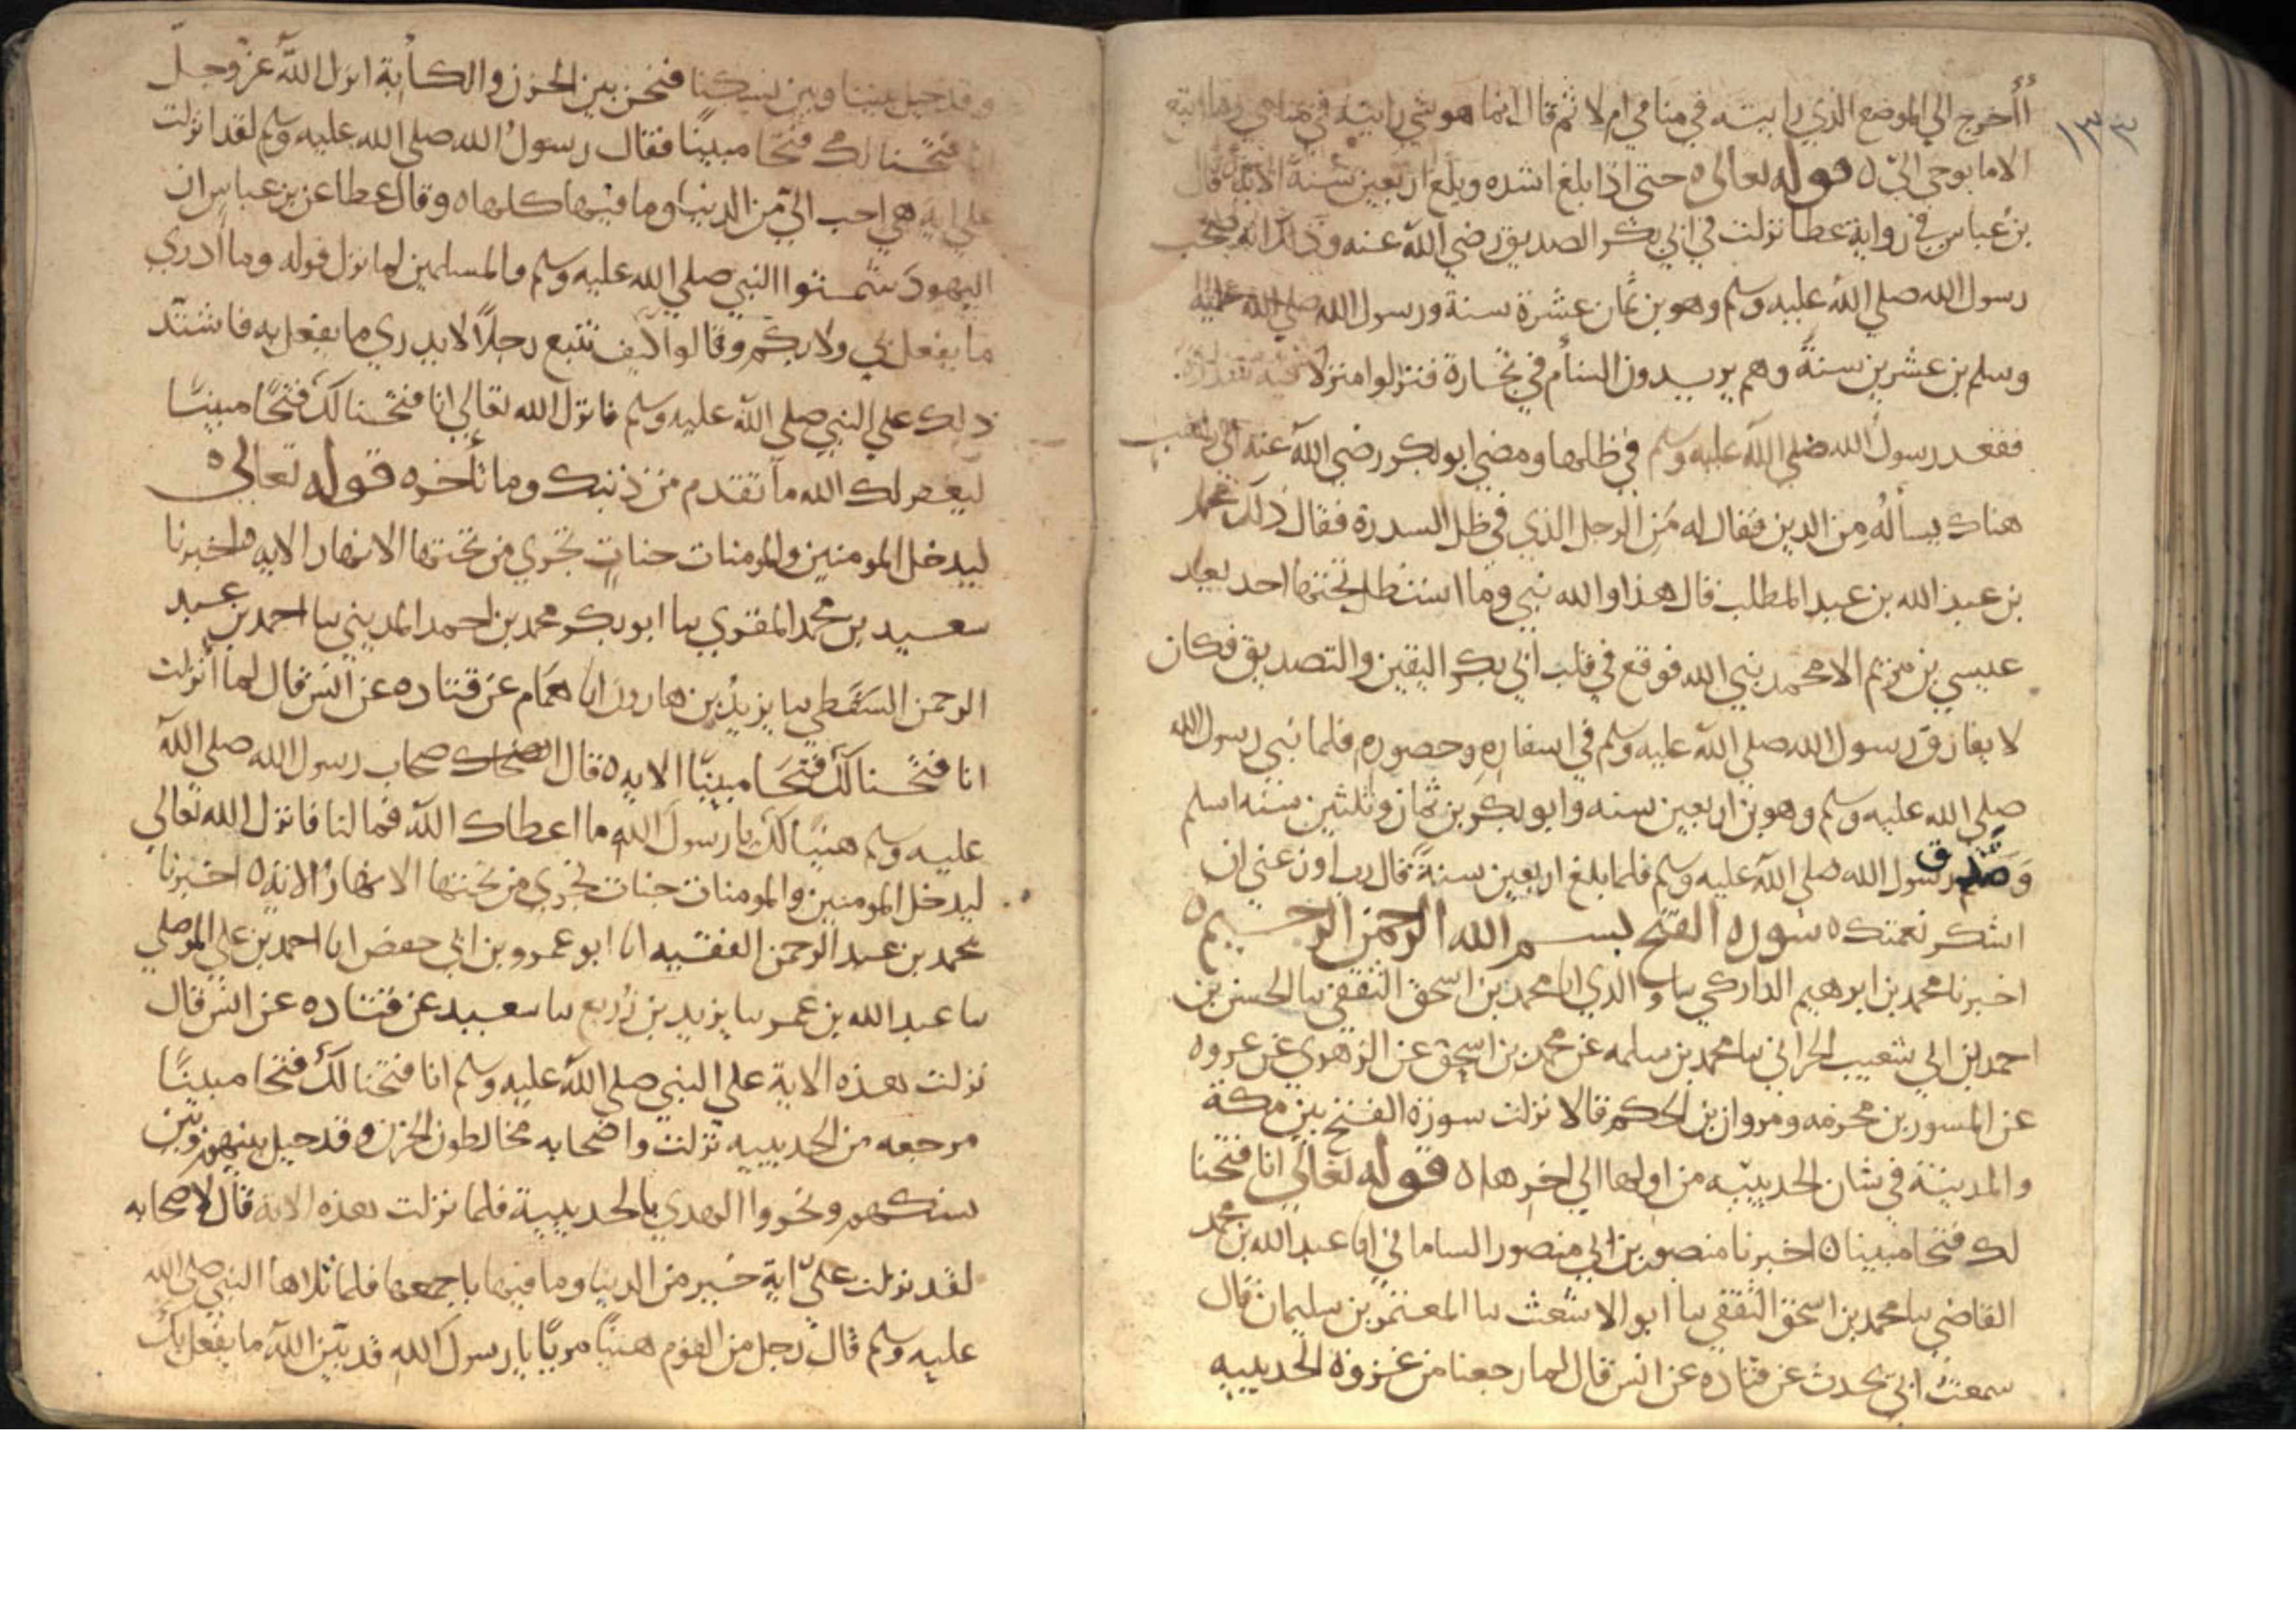 ١٣٣
أأخرج الي الموضع الذي رايته في منامي ام لا ثم قال انما هو شي رايته في منامي وما اتبع
الا ما يوحي الىّ ه قوله تعالى ه حتى اذا بلغ اشده وبلغ اربعين سنة الاية ه قال
بن عباس في رواية عطا نزلت في ابي بكر الصديق رضي الله عنه وذلك انه صحب
رسول الله صلي الله عليه وسلم وهو بن ثمان عشرة سنة ورسول الله صلي الله عليه
وسلم بن عشرين سنة وهم يريدون الشأم في تجارة فنزلوا منزلا فيه سدرة
فقعد رسول الله صلي الله عليه وسلم في ظلها ومضي ابو بكر رضي الله عنه الي راهب
هناك يسأله من الدين فقال له من الرجل الذي في ظل السدرة فقال ذلك محمد
بن عبد الله بن عبد المطلب قال هذا والله نبي وما استظل تحتها احد بعد
عيسي بن مريم الا محمد نبي الله فوقع في قلب ابي بكر اليقين والتصديق فكان
لا يفارق رسول الله صلي الله عليه وسلم في اسفاره وحضوره فلما نبي رسول الله
صلي الله عليه وسلم وهو بن اربعين سنه وابو بكر بن ثمان وثلثين سنه اسلم
وصدق رسول الله صلي الله عليه وسلم فلما بلغ اربعين سنة قال رب اوزعني ان
اشكر نعمتك ه سورة الفتح بسم الله الرحمن الرحيم ه
اخبرنا محمد بن ابرهيم الداركي ىىا والدي انا محمد بن اسحق الثقفي ىىا الحسن بن
احمد بن ابي شعيب الحراني ىىا محمد بن سلمه عن محمد بن اسحق عن الزهري عن عروه
عن المسور بن مخرمه ومروان بن الحكم قالا نزلت سورة الفتح بين مكة
والمدينة في شان الحديبيه من اولها الي اخرها ه قوله تعالي انا فتحنا
لك فتحا مبينا ه اخبرنا منصور بن ابي منصور الساماني انا عبد الله بن محمد
القاضي ىىا محمد بن اسحق الثقفي ىىا ابو الاشعث ىىا المعتمر بن سليمان قال
سمعت ابي يحدث عن قتاده عن انس قال لما رجعنا من غزوة الحديبيه
وقد حيل بيننا وبين نسكنا فنحن بين الحزن والكأبة انزل الله عز وجل
انا فتحنا لك فتحا مبينا فقال رسول الله صلي الله عليه وسلم لقد انزلت
علي اية هي احب اليّ من الدنيا وما فيها كلها ه وقال عطا عن بن عباس ان
اليهود شمتوا النبي صلي الله عليه وسلم والمسلمين لما نزل قوله وما ادري
ما يفعل بي ولا بكم وقالوا كيف نتبع رجلا لا يدري ما يفعل به فاشتد
ذلك علي النبي صلي الله عليه وسلم فانزل الله تعالي انا فتحنا لك فتحا مبينا
ليغفر لك الله ما تقدم من ذنبك وما تأخر ه قوله تعالى ه
ليدخل المومنين والمومنات جنات تجري من تحتها الانهار الايه ه اخبرنا
سعيد بن محمد المقري ىىا ابو بكر محمد بن احمد المديني ىىا احمد بن عبد
الرحمن السقطي ىىا يزيد بن هارون انا همام عن قتاده عن انس قال لما انزلت
انا فتحنا لك فتحا مبينا الايه ه قال اصحاب رسول الله صلي الله
عليه وسلم هنيا لك يا رسول الله ما اعطاك الله فما لنا فانزل الله تعالي
ليدخل المومنين والمومنات جنات تجري من تحتها الانهار الاية ه اخبرنا
محمد بن عبد الرحمن الفقيه انا ابو عمرو بن ابي حفص انا احمد بن علي الموصلي
ىىا عبد الله بن عمر ىىا يزيد بن زريع ىىا سعيد عن قتاده عن انس قال
نزلت هذه الاية علي النبي صلي الله عليه وسلم انا فتحنا لك فتحا مبينا
مرجعه من الحديبيه نزلت واصحابه مخالطون الحزن وقد حيل بينهم وبين
نسكهم ونحروا الهدي بالحديبية فلما نزلت هذه الاية قال لاصحابه
لقد نزلت عليّ اية خير من الدنيا وما فيها باجمعها فلما تلاها النبي صلي الله
عليه وسلم قال رجل من القوم هنيا مريا يا رسول الله قد بين الله ما يفعل بك